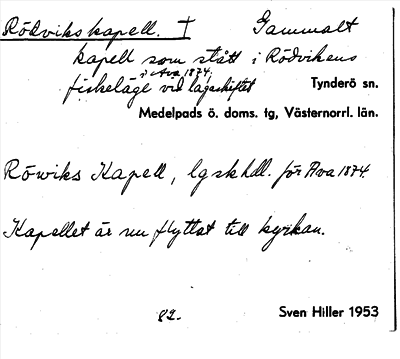 Rödvikskapell. † Gammalt
kapell som stått i Rödvikens
i Ava 1874,
fiskeläge vid lagaskiftet Tynderö sn.
Medelpads ö. doms. tg, Västernorrl. län.
Röwiks Kapell, lgskhdl. för Ava 1874
Kapellet är nu flyttat till kyrkan.
82. Sven Hiller 1953